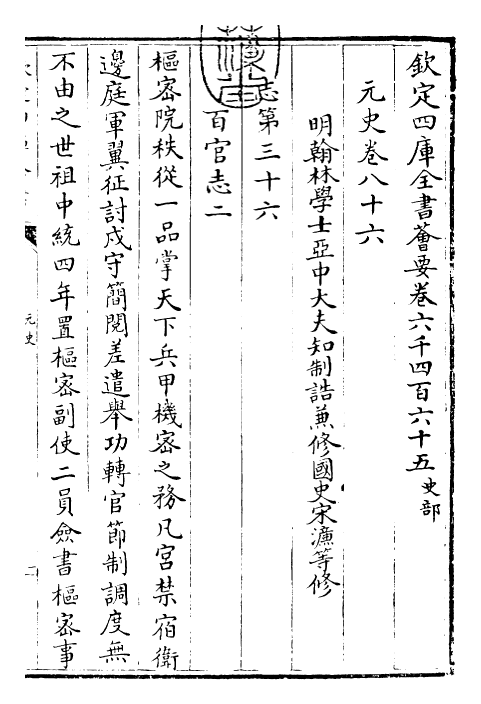 欽定四庫全書薈要卷六千四百六十五 史部
元史卷八十六
明翰林學士亞中大夫知制誥兼修國史宋濂等修
志第三十六
百官志二
樞密院秩從一品掌天下兵甲機密之務凡宮禁宿衛
邊庭軍翼征討戍守簡閱差遣舉功轉官節制調度無
不由之世祖中統四年置樞密副使二員僉書樞密事
元史